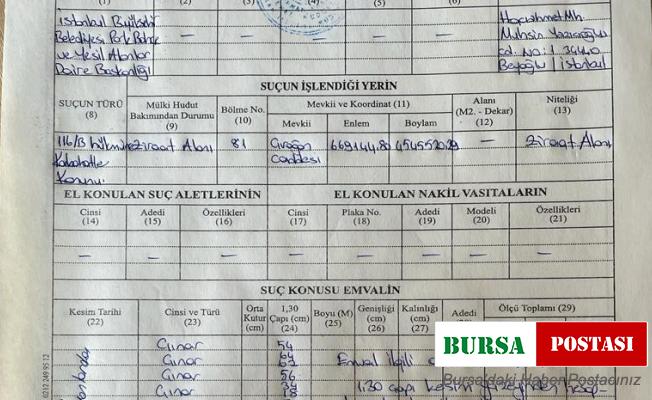 (1) (2) (3) (4) (5) (6)
İstanbul Büyükşehir
Belediyesi Park Bahçe
ve Yeşil Alanlar
Daire Başkanlığı
— — — — —
Hacıahmet Mh.
Muhsin Yazıcıoğlu
cd. No: 1 34440
Beyoğlu / İstanbul
SUÇUN İŞLENDİĞİ YERİN
SUÇUN TÜRÜ (8)
Mülki Hudut Bakımından Durumu (9)
Bölme No. (10)
Mevkii ve Koordinat (11)
Mevkii Enlem Boylam
Alanı (M2. - Dekar) (12)
Niteliği (13)
116/B
Kabahatler
Kanunu
Ziraat Alanı
81
Çırağan
Caddesi
669144.80
—
Ziraat Alanı
EL KONULAN SUÇ ALETLERİNİN
EL KONULAN NAKİL VASITALARIN
Cinsi (14)
Adedi (15)
Özellikleri (16)
Cinsi (17)
Plaka No. (18)
Adedi (19)
Modeli (20)
Özellikleri (21)
— — — — — — — —
SUÇ KONUSU EMVALİN
Kesim Tarihi (22)
Cinsi ve Türü (23)
Orta Kutur (cm)
1,30 Çapı (cm) (24)
Boyu (M) (25)
Genişliği (cm) (26)
Kalınlığı (cm) (27)
Adedi
Ölçü Toplamı (29)
Çınar 54
Çınar
Çınar
Çınar 56
Çınar
Çınar 18
Emval ilgili
1.30 çapı kesim
0212 249 95 12
BURSA POSTASI
Bursa'daki Haber Postacınız